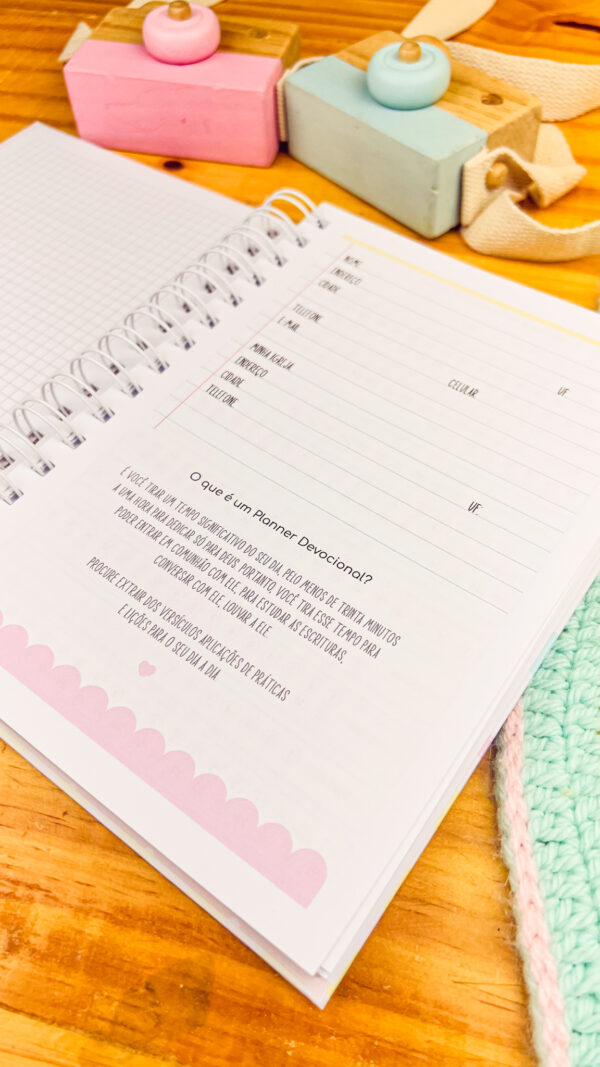 NOME
ENDEREÇO
CIDADE UF:
TELEFONE: CELULAR
E-MAIL:
MINHA IGREJA
ENDEREÇO
CIDADE UF:
TELEFONE:
O que é um Planner Devocional?
É VOCÊ TIRAR UM TEMPO SIGNIFICATIVO DO SEU DIA, PELO MENOS DE TRINTA MINUTOS
A UMA HORA PARA DEDICAR SÓ PARA DEUS. PORTANTO, VOCÊ TIRA ESSE TEMPO PARA
PODER ENTRAR EM COMUNHÃO COM ELE, PARA ESTUDAR AS ESCRITURAS,
CONVERSAR COM ELE, LOUVAR A ELE.
PROCURE EXTRAIR DOS VERSÍCULOS APLICAÇÕES DE PRÁTICAS
E LIÇÕES PARA O SEU DIA A DIA.